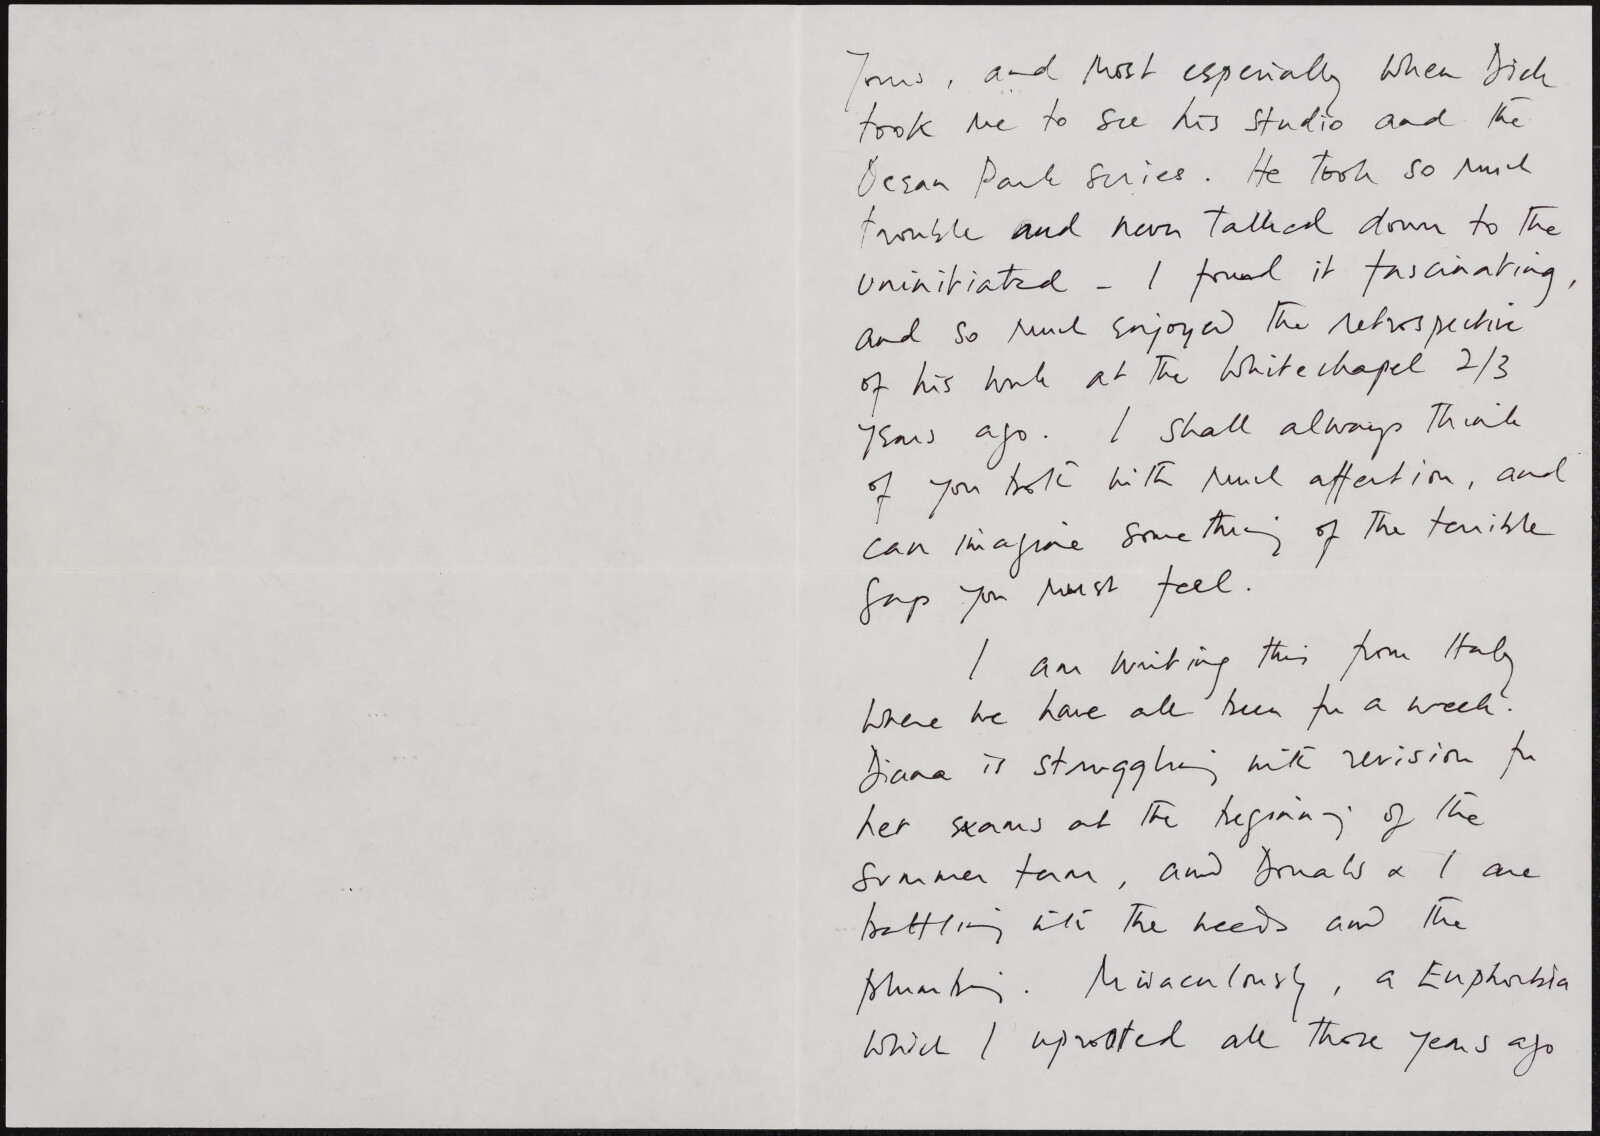 Yours, and most especially when Dick
took me to see his studio and the
Ocean Park series. He took so much
trouble and never talked down to the
uninitiated – I found it fascinating,
and so much enjoyed the retrospective
of his work at the Whitechapel 2/3
years ago. I shall always think
of you both with much affection, and
can imagine something of the terrible
gap you must feel.
I am writing this from Italy
where we have all been for a week.
Diana is struggling with revision for
her exams at the beginning of the
summer term, and Donald & I are
battling with the weeds and the
plumbing. Miraculously, a Euphorbia
which I uprooted all those years ago